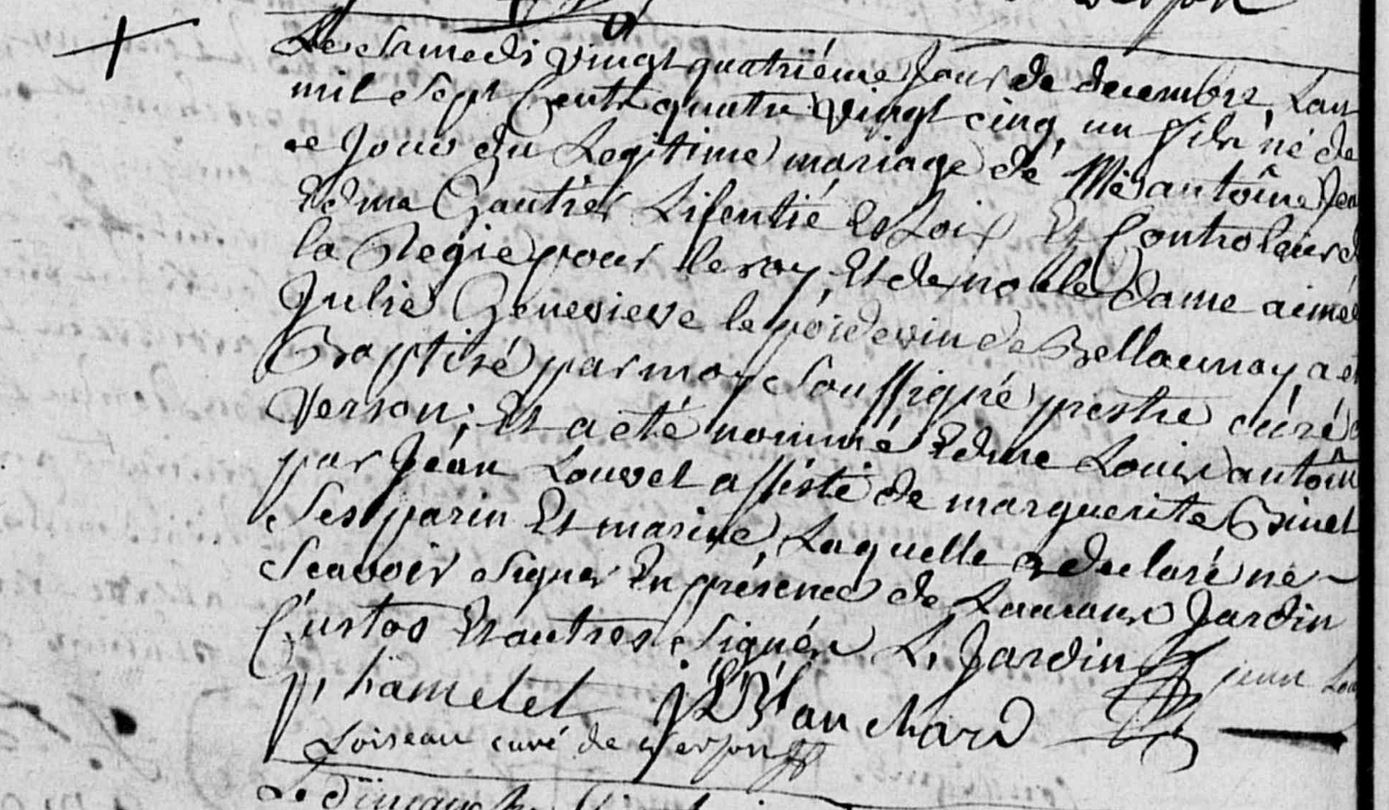 Le Samedi vingt quatriéme Jour de decembre, Lan
mil Sept Cent quatre vingt cinq, un fils né de
ce Jour du Legitime mariage de Me antoîne Jea
Edme Gautier Lisentié Es Loix Et Controleur d
la Regie pour le roy, Et de noble Dame aimée
Julie Genevieve le poidevin de Bellaunay, a e
Baptisé par moy Soussigné prestre curé d
Verson; Et a été nommé Edme Louis antoin
par Jean Louvet assisté de marguerite Binet
Ses parin Et marine, Laquelle a declaré ne
Scavoir Signer En présence de Laurans Jardin
Custos Et autres Signés L, Jardin jean Lou
p, hamelet j Blanchard
Loiseau curé de verson
Le dimanche